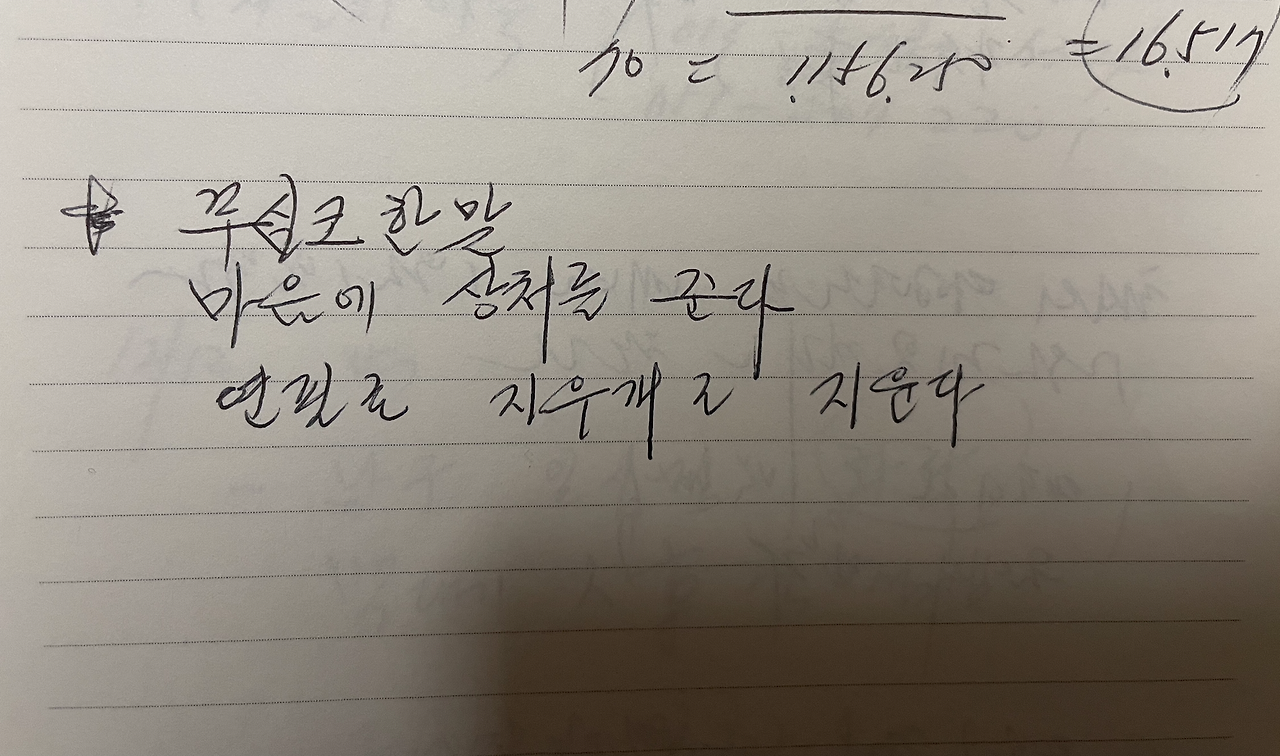 70 = 1,156,250 = 16,517
무심코 한말
마음에 상처를 준다
연필로 지우개로 지운다